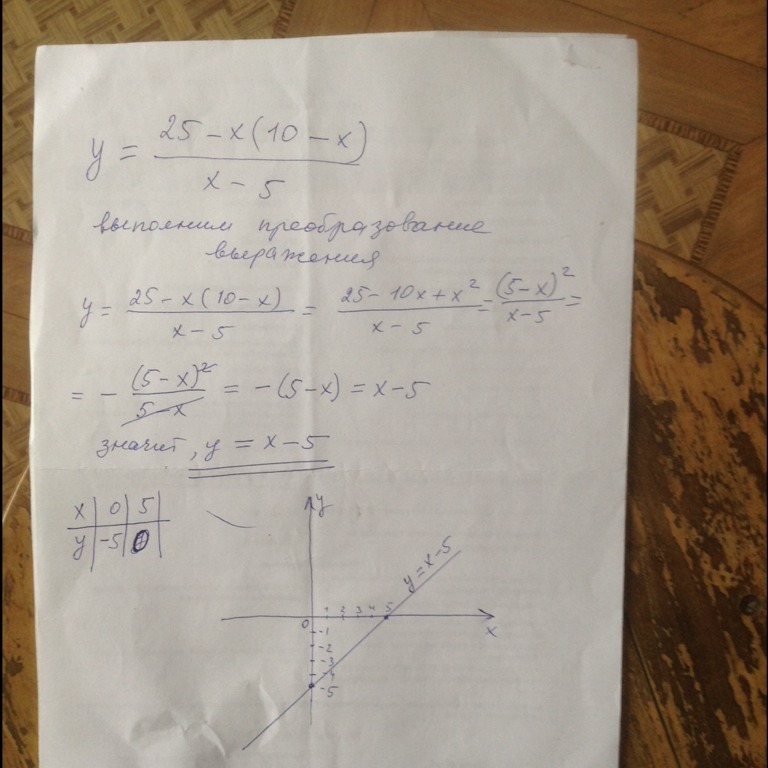 y = (25 - x(10 - x)) / (x - 5)
выполним преобразование
выражения
y = (25 - x(10 - x)) / (x - 5) = (25 - 10x + x²) / (x - 5) = (5 - x)² / (x - 5) =
= - (5 - x)² / (5 - x) = -(5 - x) = x - 5
значит, y = x - 5
x | 0 | 5 |
y | -5 | 0 |
y
y = x - 5
0 1 2 3 4 5
x
-1
-2
-3
-4
-5